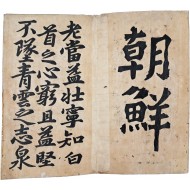 朝鮮
老當益壯寧知白
首之心窮且益堅
不墜青雲之志泉